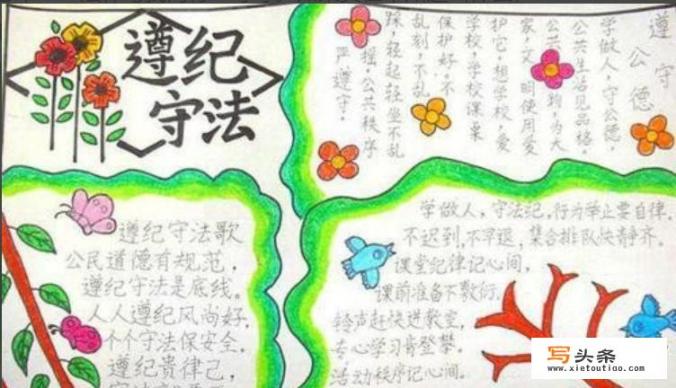 遵纪
守法
遵守
公德
学做人,守公德,
公共生活见品格。
公共
均,为大
家,文明使用爱
护它。想学校,爱
学校,学校课桌
保护好。不
乱刻,不乱
踩,轻起轻坐不乱
摇。公共秩序
严遵守。
遵纪守法歌
公民道德有规范,
遵纪守法是底线。
人人遵纪风尚好,
个个守法保安全。
遵纪贵律己,
学做人,守法纪,行为举止要自律。
不迟到,不早退,集合排队快静齐。
课堂纪律记心间,
课前准备不敷衍。
铃声赶快进教室,
专心学习肯登攀。
活动秩序记心间。
写头条
www.xietoutiao.com